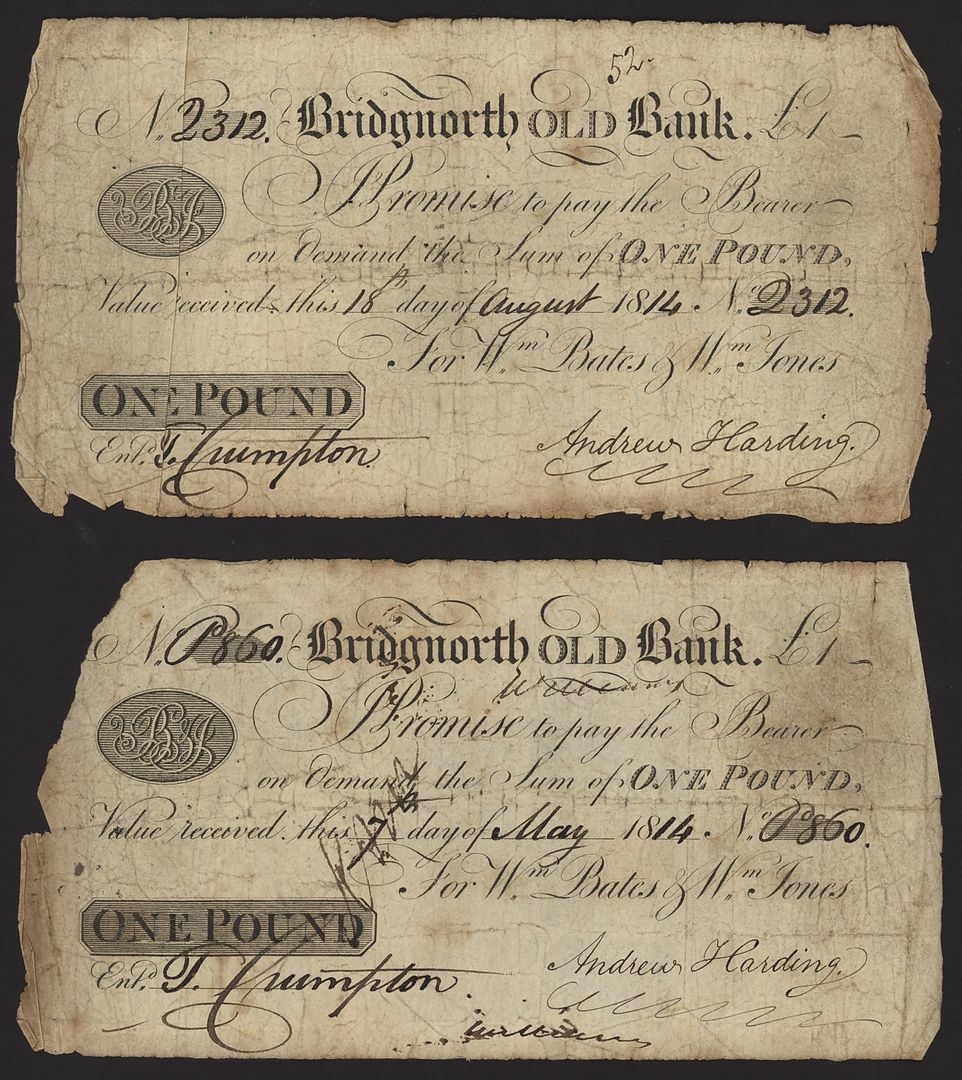 52.
No. 2312. Bridgnorth OLD Bank. £1
I Promise to pay the Bearer
on demand the Sum of ONE POUND,
Value received this 18th day of August 1814. No. 2312.
For Wm. Bates & Wm. Jones
ONE POUND
Entd. T. Crumpton. Andrew Harding.
No. P860. Bridgnorth OLD Bank. £1
I Promise to pay the Bearer
on demand the Sum of ONE POUND,
Value received this 7th day of May 1814. No. P860.
For Wm. Bates & Wm. Jones
ONE POUND
Entd. T. Crumpton. Andrew Harding.